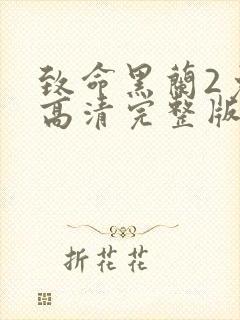 致命黑蘭2
高清完整版
折花花